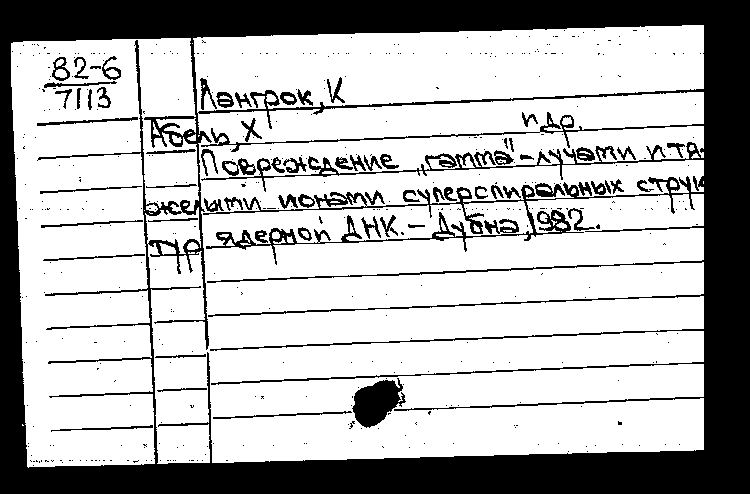 82-6
7113
Лангрок, К
Абель, Х и др.
Повреждение „гамма"-лучами и тя-
желыми ионами суперспиральных струк
тур ядерной ДНК. – Дубна, 1982.